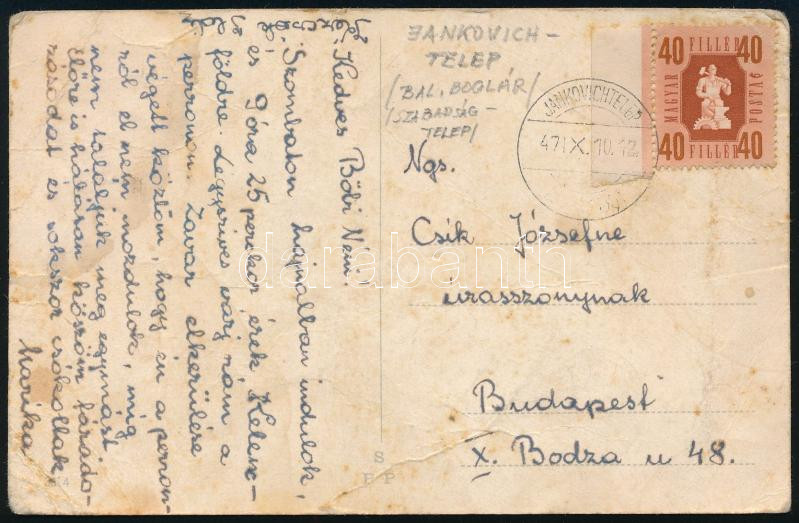 Kedves Bödi Néni!
Szombaton hajnalban indulok,
és 9 óra 25 perckor érek Kelen-
földre. Légyszíves várj rám a
perronon. Zavar elkerülése
végett közlöm, hogy én a perron-
ról el nem mozdulok, míg
nem találjuk meg egymást
Előre is hálásan köszöm fárado-
zásodat és sokszor csókollak
Marika
JANKOVICH-
TELEP
/BAL. BOGLÁR/
/SZABADSÁG-
TELEP/
JANKOVICHTELEP
471X.10.12
40 FILLÉR 40
MAGYAR
POSTA
40 FILLÉR 40
Ngs.
Csik Józsefne
úrasszonynak
Budapest
X. Bodza u 48.
S
EP
darabanth